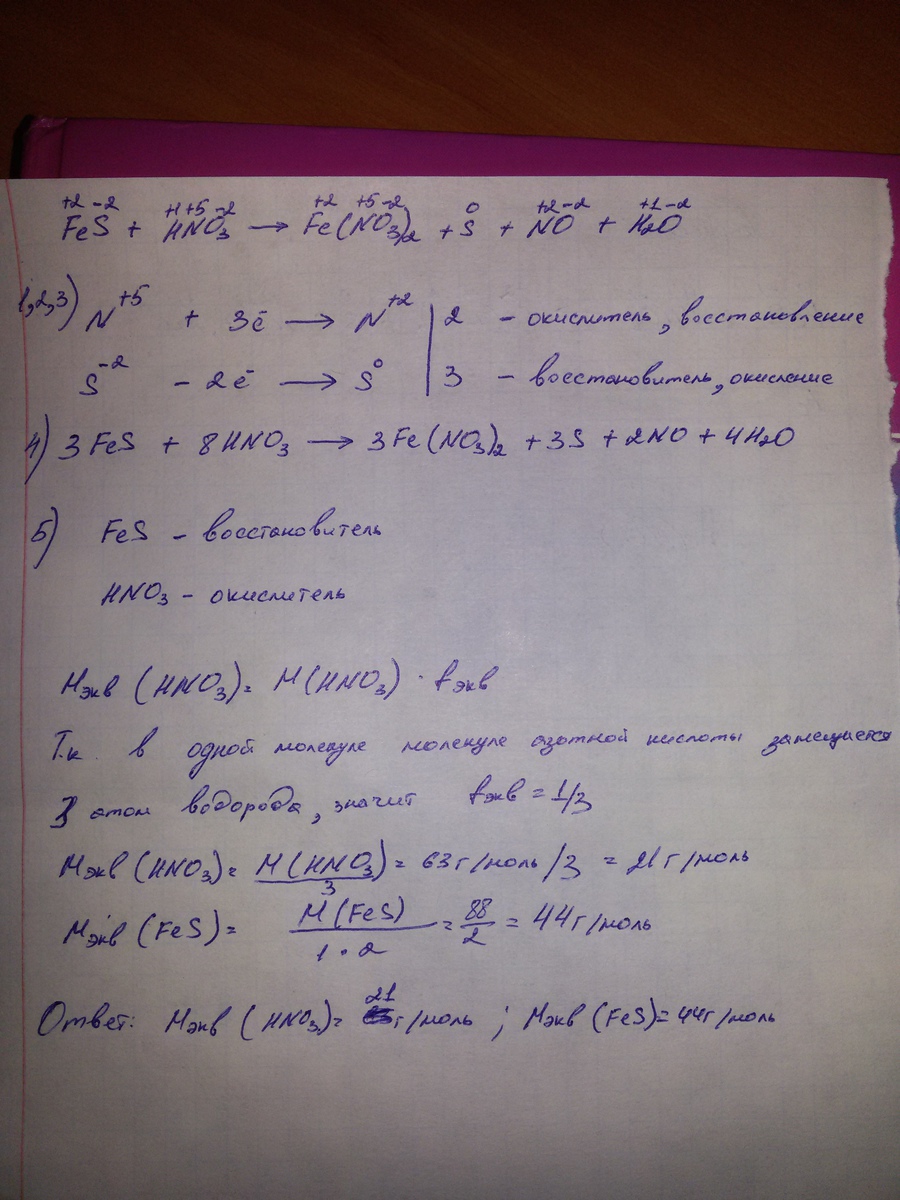 +2 -2 +1 +5 -2 +2 +5 -2 0 +2 -2 +1 -2
FeS + HNO₃ → Fe(NO₃)₂ + S + NO + H₂O
1,2,3) N⁺⁵ + 3ē → N⁺² | 2 - окислитель, восстановление
S⁻² - 2ē → S⁰ | 3 - восстановитель, окисление
4) 3FeS + 8HNO₃ → 3Fe(NO₃)₂ + 3S + 2NO + 4H₂O
5) FeS - восстановитель
HNO₃ - окислитель
Mэкв (HNO₃) = M(HNO₃) · fэкв
Т.к. в одной молекуле молекуле азотной кислоты замещается
3 атом водорода, значит fэкв = 1/3
Mэкв (HNO₃) = M(HNO₃)/3 = 63 г/моль /3 = 21 г/моль
Mэкв (FeS) = M(FeS)/1·2 = 88/2 = 44 г/моль
Ответ: Mэкв (HNO₃) = 21 г/моль ; Mэкв (FeS) = 44 г/моль